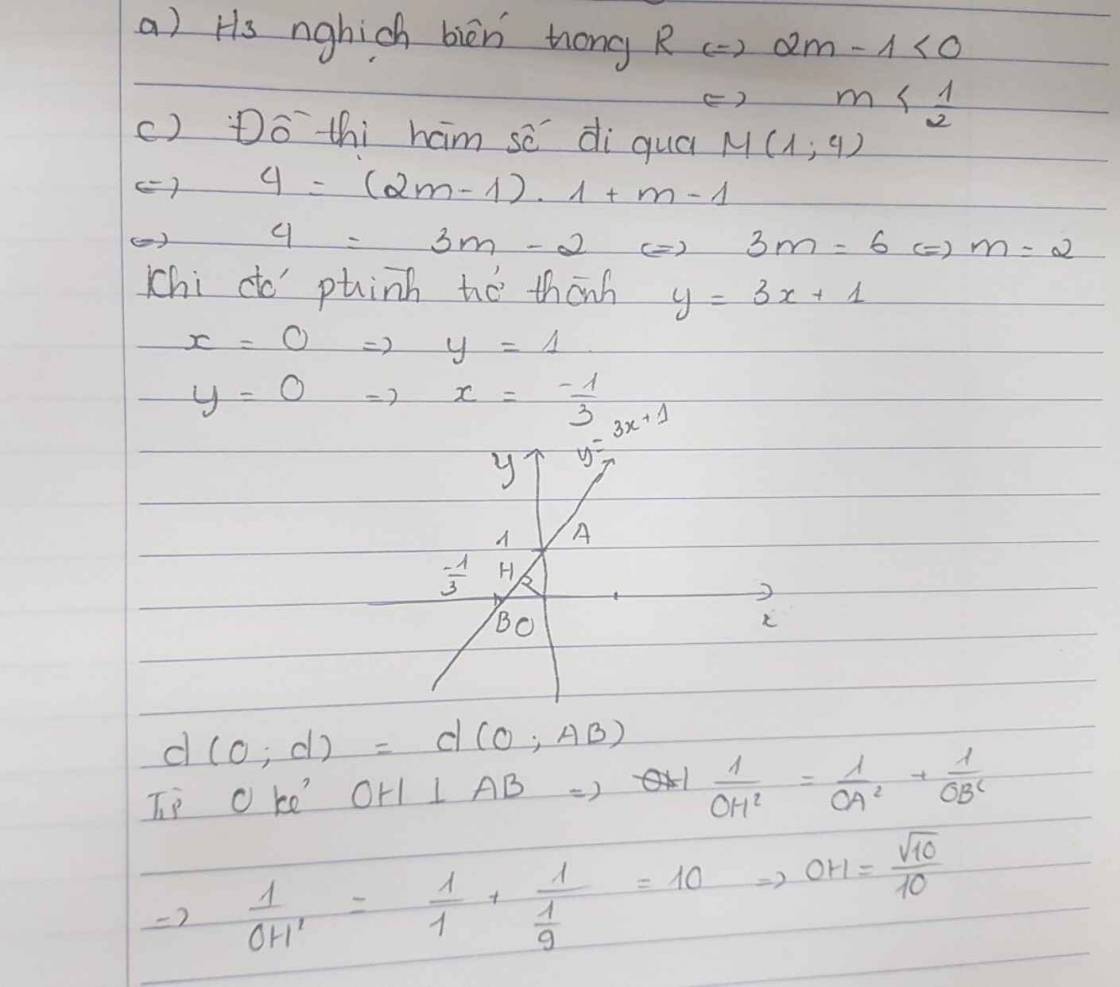 a) Hs nghịch biến trong R <=> 2m - 1 < 0
<=> m < 1/2
c) Đồ thị hàm số đi qua M(1;4)
<=> 4 = (2m-1). 1 + m - 1
<=> 4 = 3m - 2 <=> 3m = 6 <=> m = 2
Khi đó trở thành y = 3x + 1
x = 0 => y = 1
y = 0 => x = -1/3
y = 3x+1
y
1 A
-1/3 H
B O x
d(O; d) = d(O; AB)
Từ O kẻ OH ⊥ AB => 1/OH² = 1/OA² + 1/OB²
=> 1/OH² = 1/1 + 1/(1/9) = 10 => OH = √10/10